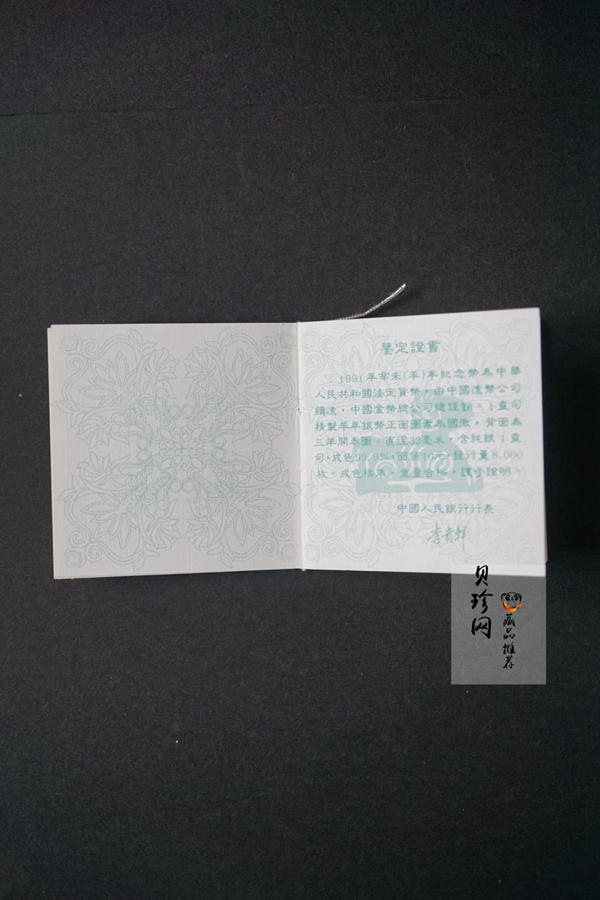 鑒定證書
1991年辛未(羊)年紀念幣為中華
人民共和國法定貨幣，由中國造幣公司
鑄造，中國金幣總公司總經銷。1盎司
精製羊年銀幣正面圖案為國徽，背面為
三羊開泰圖。直徑32毫米，含純銀1盎
司，成色99.9%，面值10元，發行量8.000
枚。成色標準，重量合格，謹予證明。
中國人民銀行行長
李貴鲜
贝珍网
藏品推荐